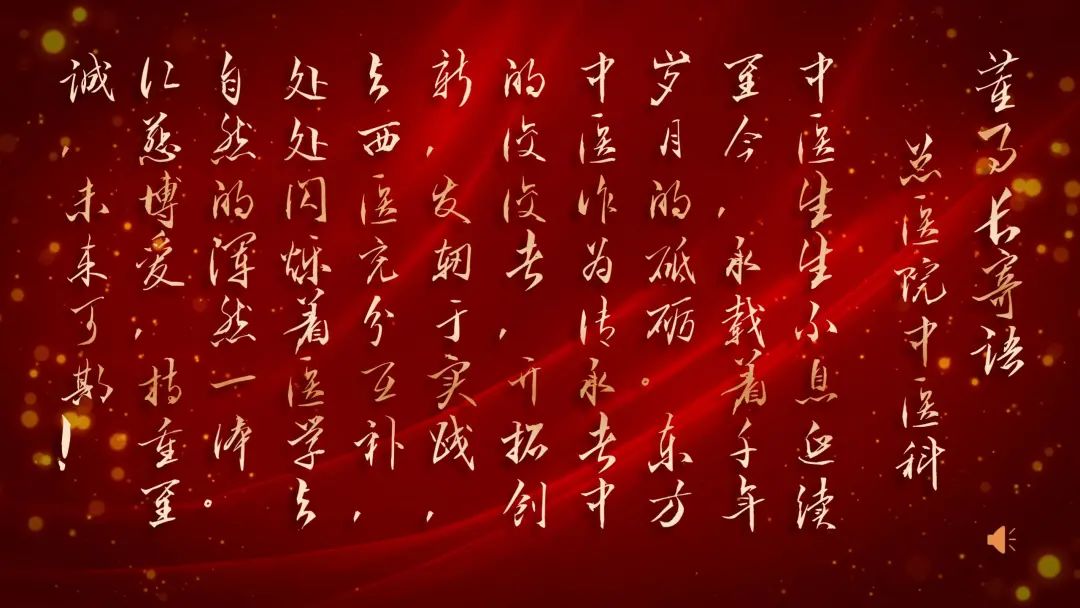 董事长寄语
总医院中医科
中医生生不息延续
至今，承载着千年
岁月的砥砺。东方
中医作为传承者中
的佼佼者，开拓创
新，发轫于实践，
与西医充分互补，
处处闪烁着医学与
自然的浑然一体。
仁慈博爱，持重至
诚，未来可期！